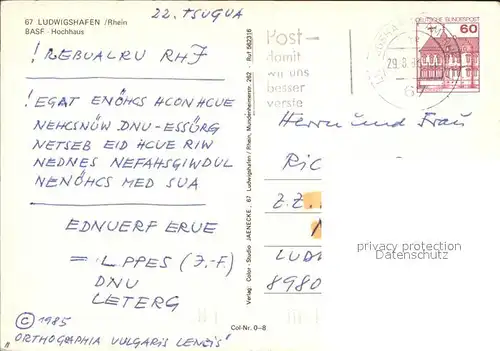 67 LUDWIGSHAFEN /Rhein
BASF - Hochhaus
22. TSUGUA
! REBUALRU RHJ
! EGAT ENÖHCS HCON HCUE
NEHCSNÜW DNU-ESSÖRG
NETSEB EID HCUE RIW
NEDNES NEFAHSGIWDUL
NENÖHCS MED SUA
EDNUERF ERUE
= LPPES (J.-F.)
DNU
LETERG
© 1985
"ORTHOGRAPHIA VULGARIS LENZIS"
Verlag: Color - Studio JAENECKE, 67 Ludwigshafen / Rhein, Mundenheimerstr. 262 - Ruf 562316
Col-Nr. 0-8
Post-
damit
wir uns
besser
verste
29.8.
67
DEUTSCHE BUNDESPOST
60
Herrn und Frau
RIC
z.Z.
LUD
8980
privacy protection
Datenschutz